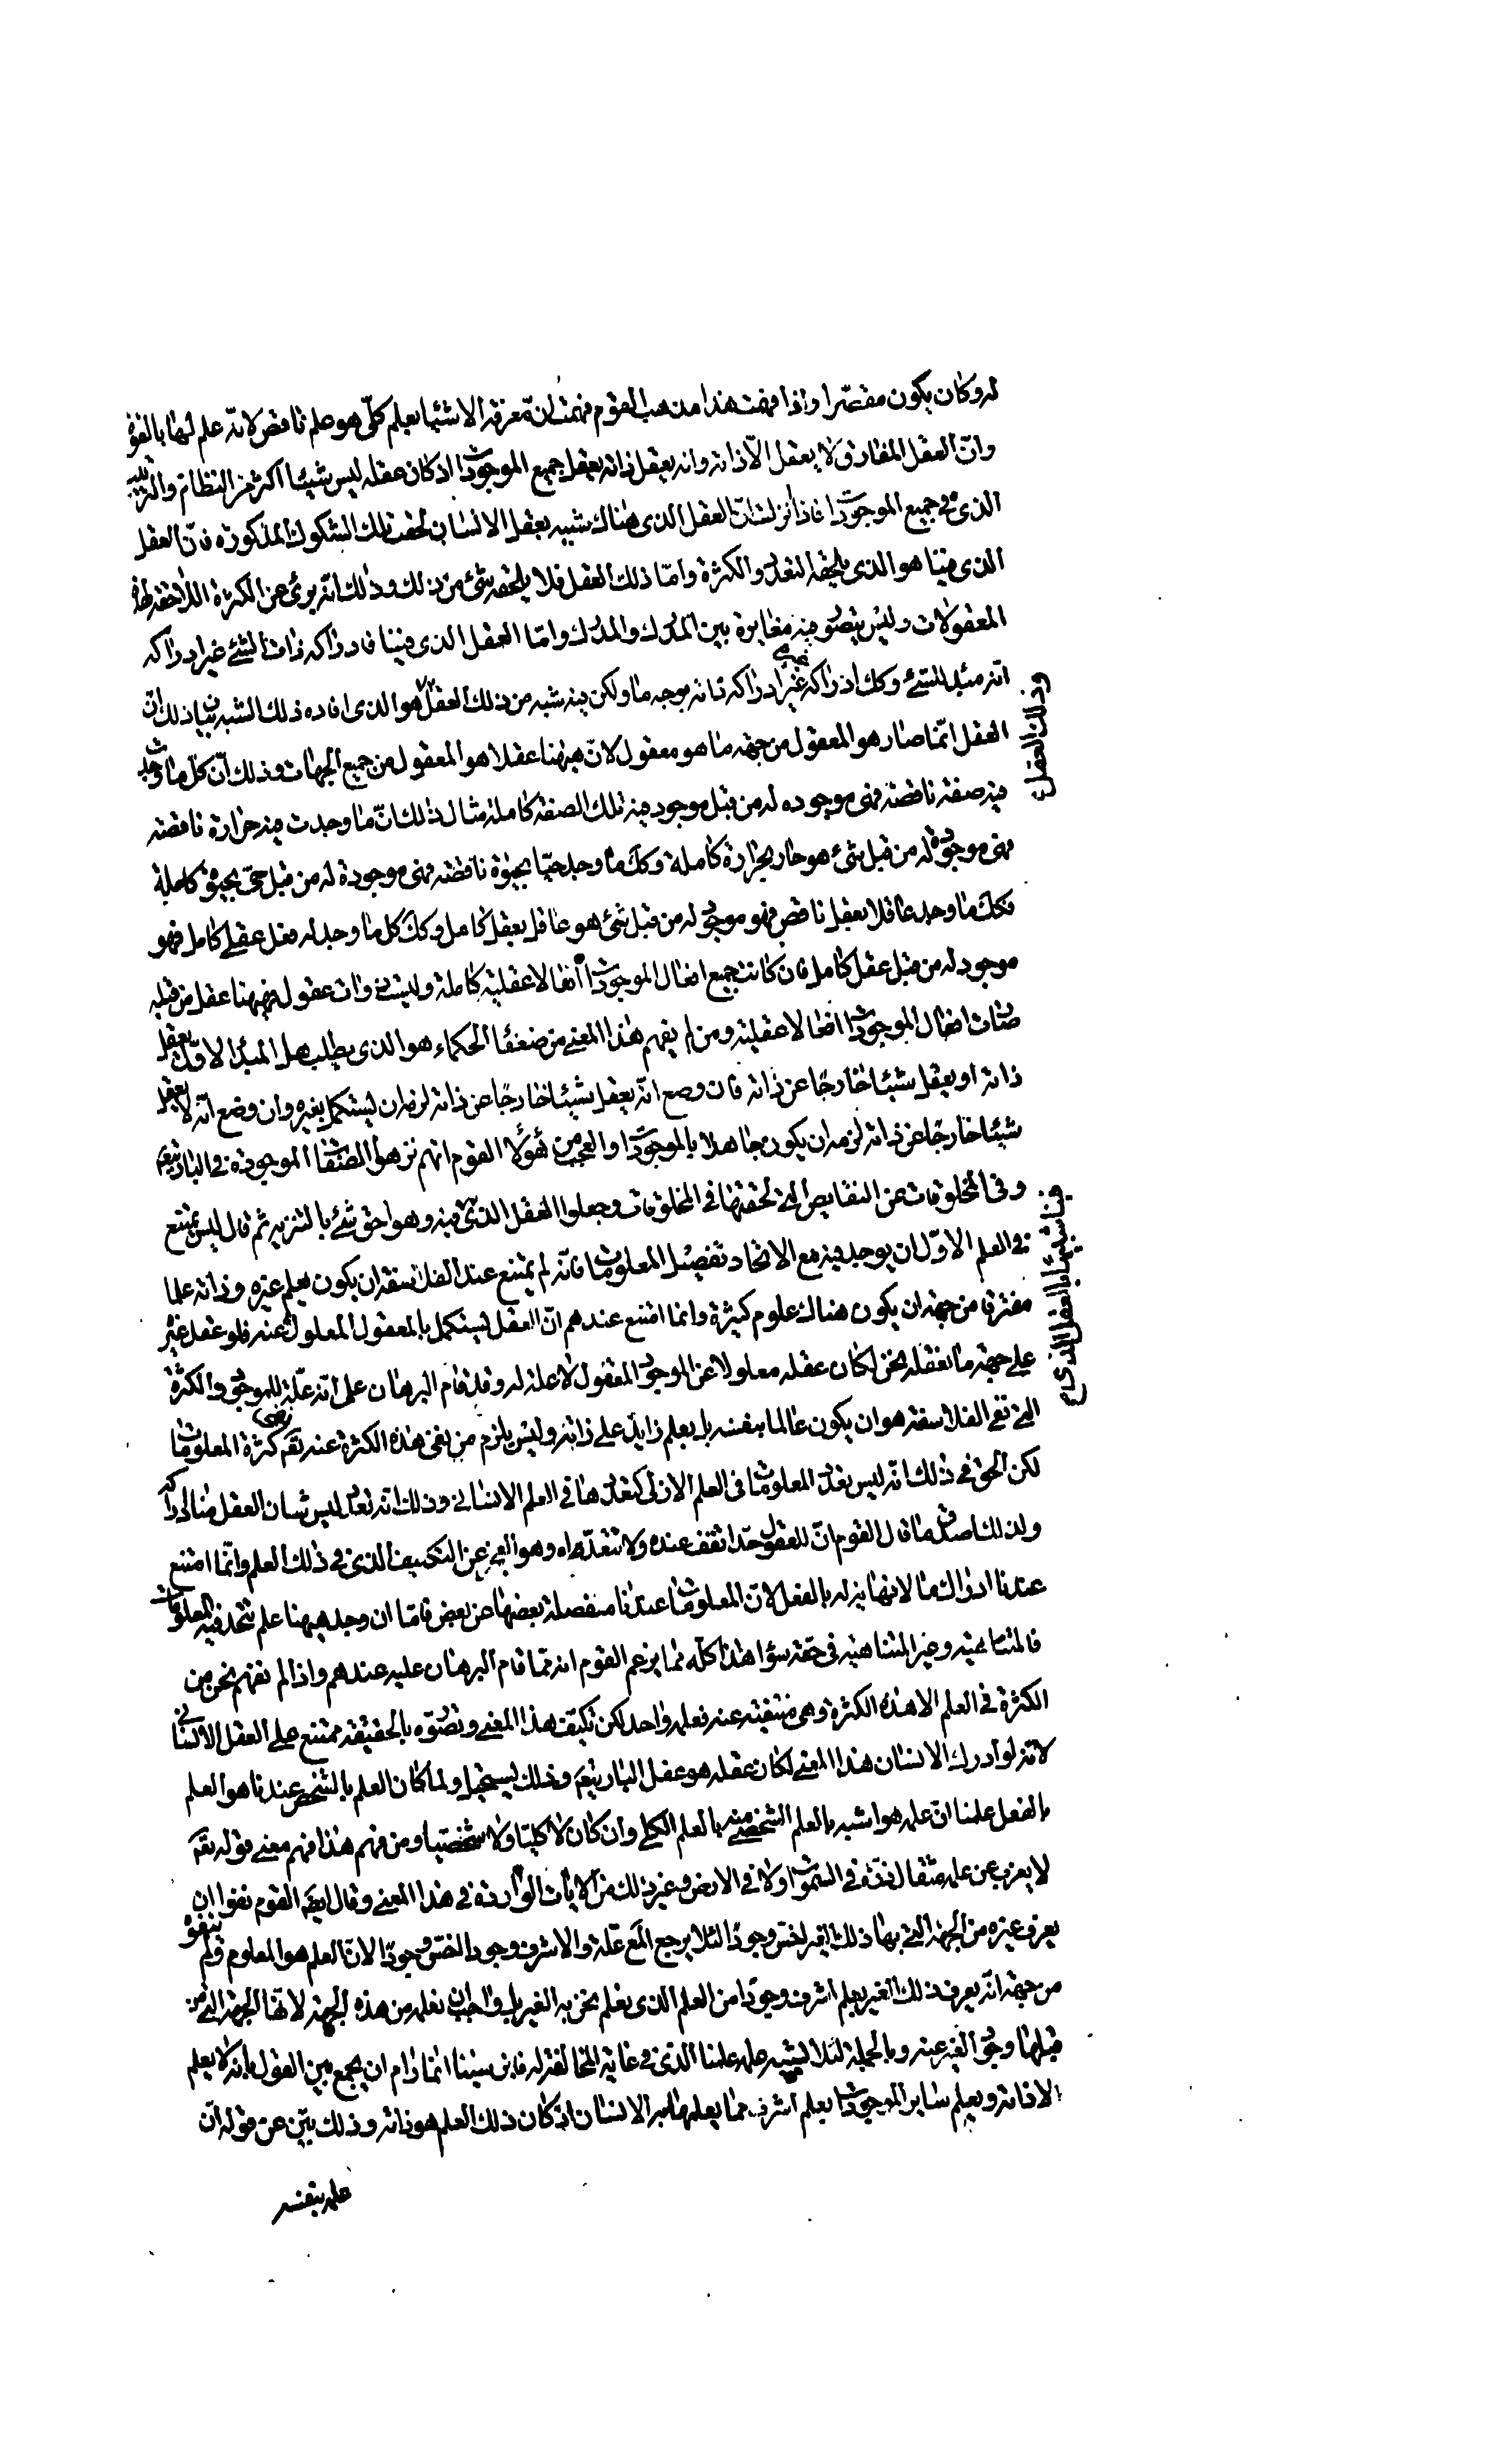 له وكان يكون مقصرا واذا فهمت هذا من مذهب القوم فهمت ان معرفة الاشيا بعلم كلّى هو علم ناقص لانه علم لها بالقوة
وانّ العقل المفارق لا يعقل الّا ذاته وانه يعقل ذاته يعقل جميع الموجودات اذ كان عقله ليس شيئا اكثر من النظام والترتيب
الذى فى جميع الموجودات فاذا نزلت انّ العقل الذى هناك شبيه بعقل الانسان لحقت تلك الشكوك المذكورة فانّ العقل
الذى فينا هو الذى يلحقه التعدد والكثرة وامّا ذلك العقل فلا يلحقه شئ من ذلك وذلك انّه برئ عن الكثرة اللاحقة لهذه
المعقولات وليس يتصور فيه مغايرة بين المدرك والمدرك وامّا العقل الذى فينا فادراكه ذات الشئ غير ادراكه
انّه مبدا للشئ وكك ادراكه غيره غير ادراكه ذاته بوجه ما ولكن فيه شبه من ذلك العقل وذلك العقل هو الذى افاده ذلك الشبه بيان ذلك انّ
العقل انّما صار هو المعقول من جهة ما هو معقول لانّ ههنا عقلا هو المعقول من جميع الجهات وذلك انّ كل ما وجدت
فيه صفة ناقصة فهى موجوده له من قبل موجود فيه تلك الصفة كاملة مثال ذلك انّ ما وجدت فيه حرارة ناقصة
فهى موجودة له من قبل شئ هو حار بحرارة كاملة وكك ما وجد حيّا بحيوة ناقصة فهى موجودة له من قبل حىّ بحيوة كاملة
فكك ما وجد عاقلا بعقل ناقص فهو موجود له من قبل شئ هو عاقل بعقل كامل وكك كل ما وجد له فعل عقلى كامل فهو
موجود له من قبل عقل كامل فان كانت جميع افعال الموجودات افعالا عقلية كاملة وليست ذوات عقول فههنا عقل من قبله
صارت افعال الموجودات افعالا عقلية ومن لم يفهم هذا المعنى من ضعفا الحكماء هو الذى يطلب هل المبدا الاول يعقل
ذاته او يعقل شيئا خارجا عن ذاته فان وضع انّه يعقل شيئا خارجا عن ذاته لزمه ان يستكمل بغيره وان وضع انّه لا يعقل
شيئا خارجا عن ذاته لزمه ان يكون جاهلا بالموجودات والعجب من هؤلا القوم انهم نزهوا الصفات الموجودة فى البارى تعم
وفى المخلوقات عن النقايص التى لحقتها فى المخلوقات وجعلوا العقل الذى فينا شبيها بالعقل الذى فيه وهو احق شئ بالتنزيه ثم قال ليس يمتنع
فى العلم الاوّل ان يوجد فيه مع الاتحاد تفصيل المعلومات فانّه لم يمتنع عند الفلاسفة ان يكون يعلم غيره وذاته علما
مفترقا من جهة ان يكون هناك علوم كثيرة وانما امتنع عندهم انّ العقل يستكمل بالمعقول المعلول عنه فلو عقل غيره
على جهة ما نعقله نحن لكان عقله معلولا عن الموجود المعقول لا علة له وقد قام البرهان على انّه علّة للموجود والكثرة
التى نفى الفلاسفة هو ان يكون عالما بنفسه بل بعلم زايد على ذاته وليس يلزم من نفى هذه الكثرة عنه تعم نفى كثرة المعلومات
لكن الحق فى ذلك انّه ليس تعدد المعلومات فى العلم الازلى كتعددها فى العلم الانسانى وذلك انه تعدد ليس شان العقل منا ادراكه
ولذلك اصدق ما قال القوم انّ للعقول حدّا تقف عنده ولا تتعداه وهو العجز عن التكييف الذى فى ذلك العلم وانّما امتنع
عندنا ادراك ما لا نهاية له بالفعل لانّ المعلومات عندنا منفصلة بعضها عن بعض فامّا ان وجد ههنا علم تتحد فيه المعلومات
فالمتناهية وغير المتناهية فى حقّه سوا هذا كلّه مما يزعم القوم انه ممّا قام البرهان عليه عندهم واذا لم نفهم نحن من
الكثرة فى العلم الا هذه الكثرة وهى منتفية عنه فعلمه واحد لكن تكييف هذا المعنى وتصوّره بالحقيقة ممتنع على العقل الانسانى
لانّه لو ادرك الانسان هذا المعنى لكان عقله هو عقل البارى تعم وذلك يستحيل ولما كان العلم بالشخص عندنا هو العلم
بالفعل علمنا انّ علمه هو اشبه بالعلم الشخصى منه بالعلم الكلى وان كان لا كليّا ولا شخصيا ومن فهم هذا فهم معنى قوله تعم
لا يعزب عن علمه مثقال ذرّة فى السموات ولا فى الارض وغير ذلك من الآيات الواردة فى هذا المعنى وقال ايضا القوم نفوا ان
يعرف غيره من الجهة التى بها ذلك الغير اخسّ وجودا لئلا يرجع المع علّة والاشرف وجودا اخسّ وجودا لانّ العلم هو المعلوم ولم ينفوه
من جهة انّه يعرف ذلك الغير بعلم اشرف وجودا من العلم الذى نعلم نحن به الغير بل واجب ان يعلمه من هذه الجهة لانّها الجهة التى من
قبلها وجود الغير عنه وبالجملة لئلا يشبه علمه علمنا الذى فى غاية المخالفة له فابن سينا انّما رام ان يجمع بين القول بانه لا يعلم
الا ذاته ويعلم ساير الموجودات بعلم اشرف ممّا يعلمها به الانسان اذ كان ذلك العلم هو ذاته وذلك بيّن عن قوله انّ
علمه بنفسه